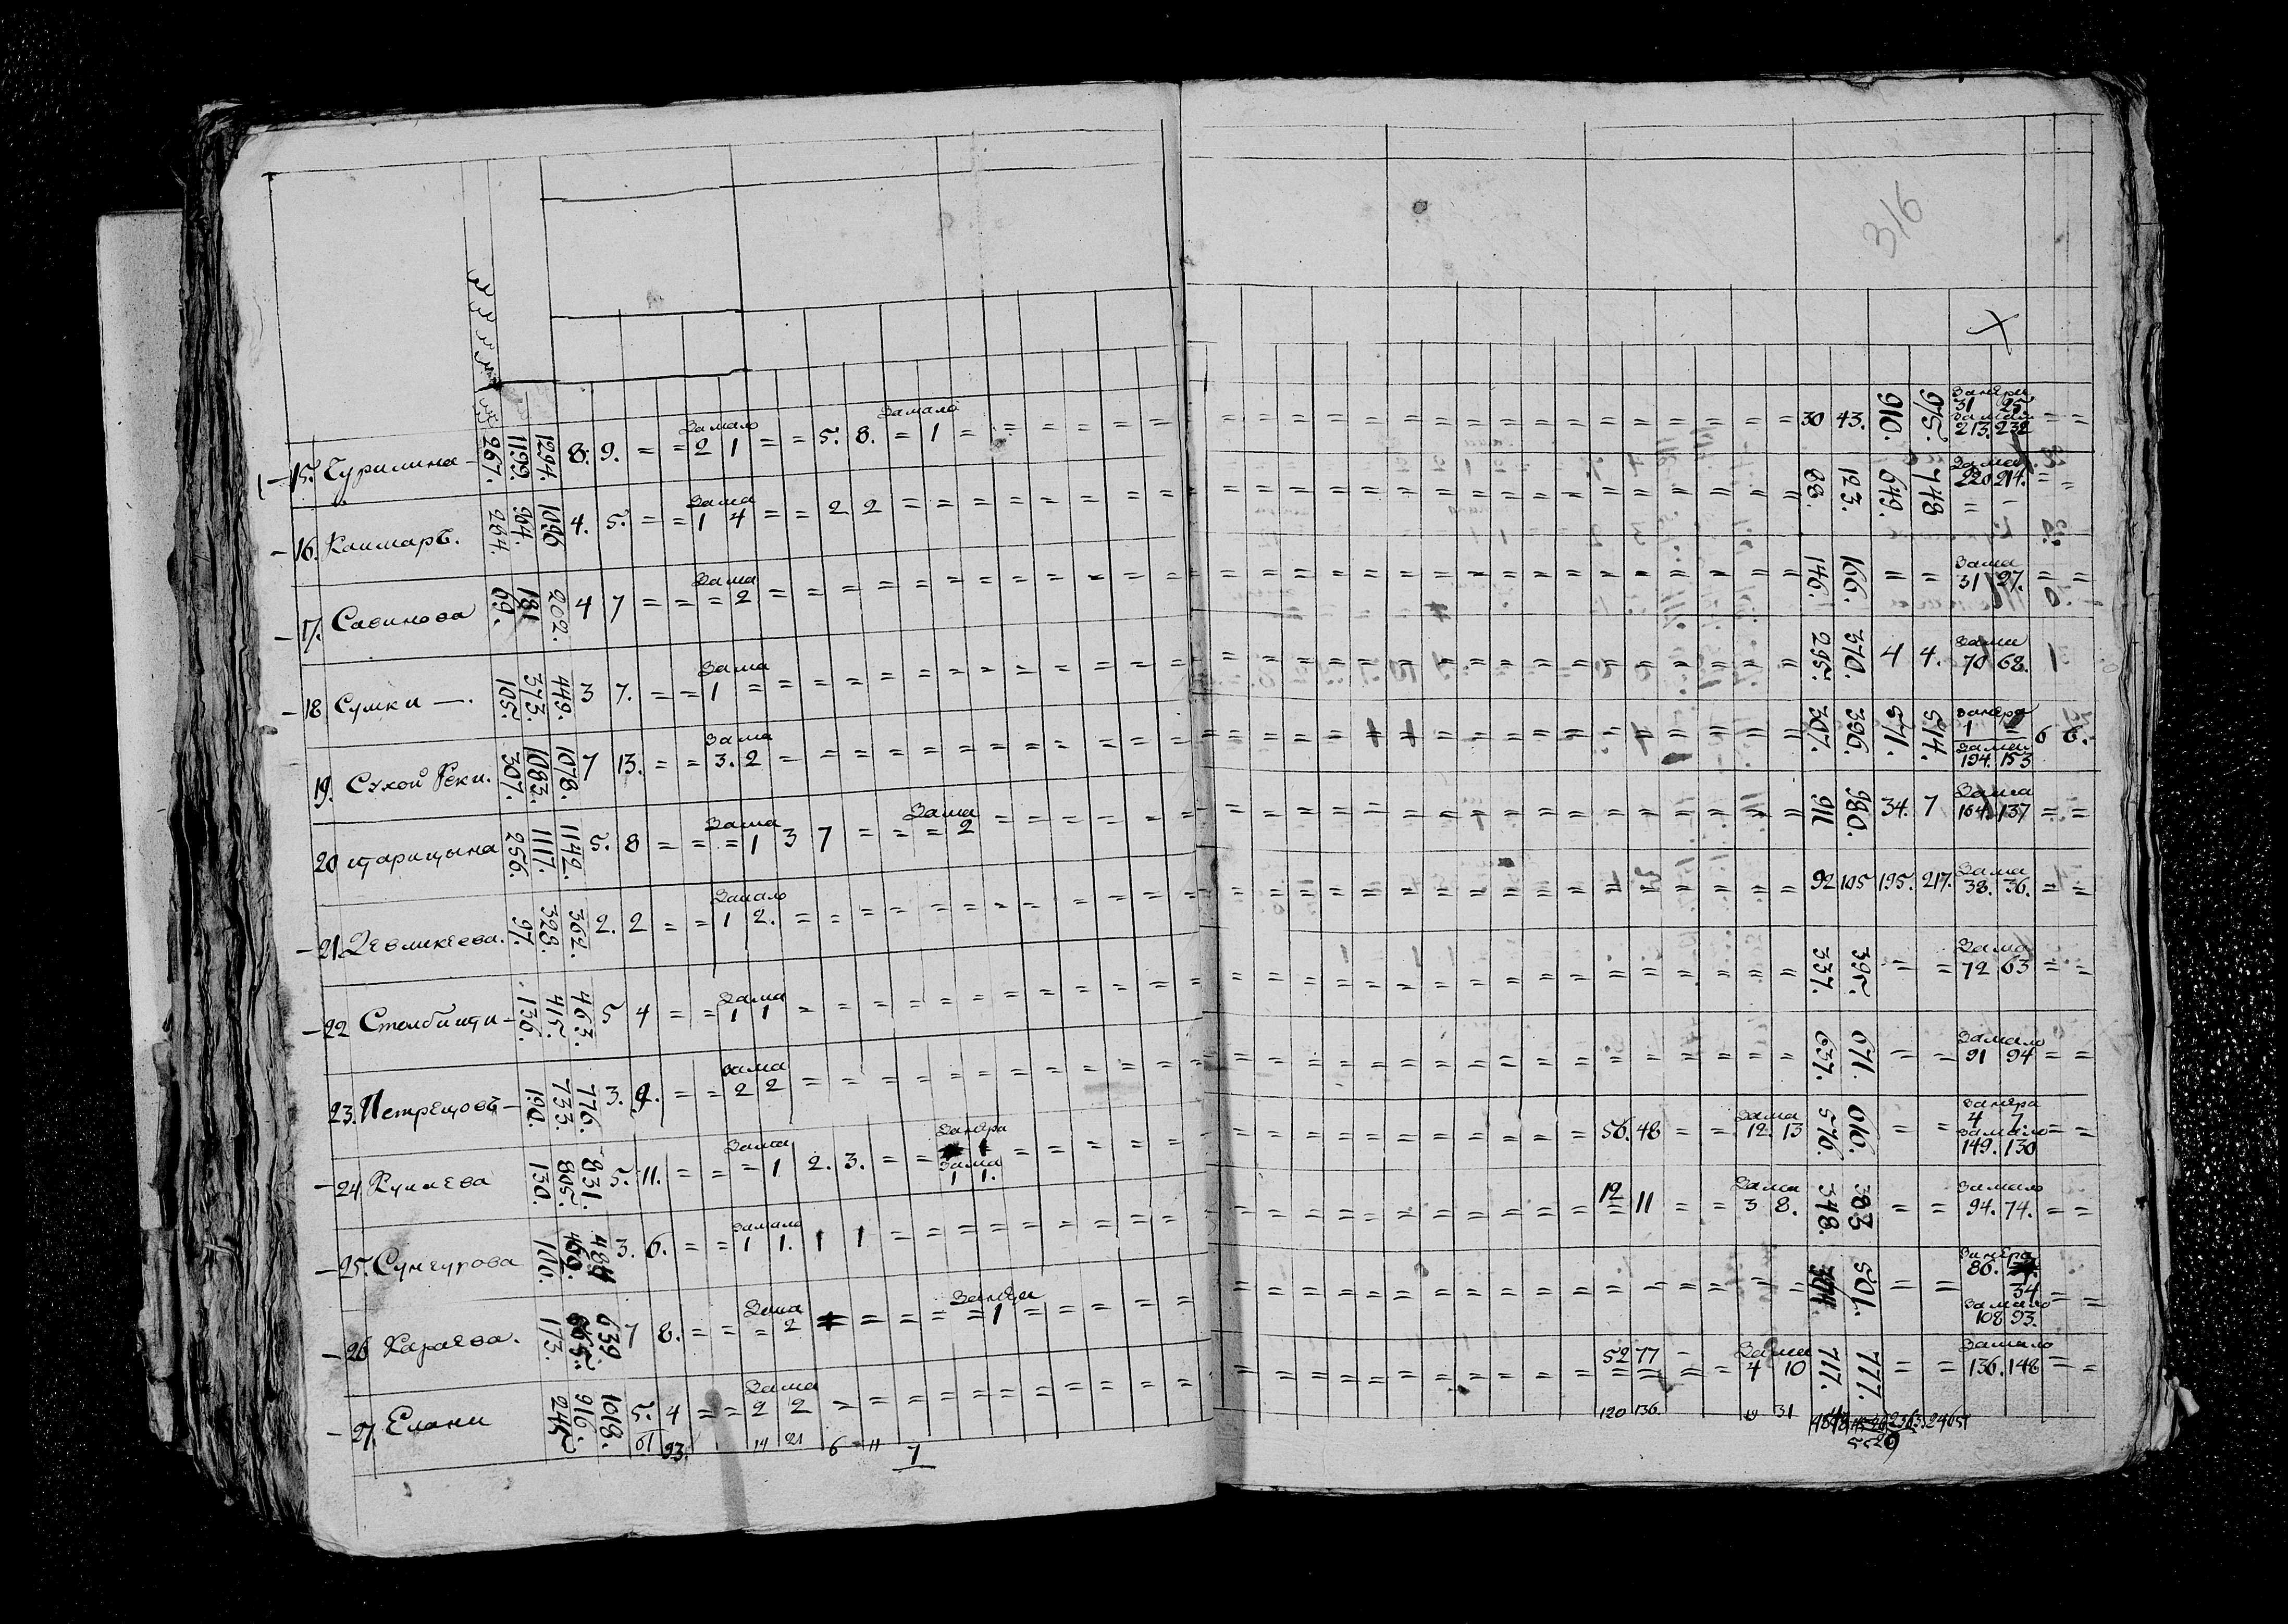 316
15. Чурилина 267. 1199. 1294. 8. 9. = = замало 2 1 = = 5. 8. = замало 1 = = = = = = = = = = = = = = = = = = = = = = = 30 43. 910. 975. занѣри 31 25 замало 213. 232 = =
16. Каимаръ. 284. 964. 1096 4. 5. = = зама 1 4 = = 2 2 = = = = = = = = = = = = = = = = = = = = = = = = = 88. 123. 649. 748 замал 220 214. = =
17. Савинова 69. 181 202. 4 7 = = зама = 2 = = = = = = = = = = = = = = = = = = = = = = = = = = = = = 146. 166. = = зама 31 27. = =
18 Сумки —. 105. 373. 449. 3 7. = = зама 1 = = = = = = = = = = = = = = = = = = = = = = = = = = = = = = 295. 370. 4 4. зами 70 68. 1
19. Сухой Реки. 307. 1083. 1078. 7 13. = = зама 3. 2 = = = = = = = = = = = = = = = = = = = = = = = = = = = 307. 396. 571. 514. занѣра 1 замал 194. 153 6 6.
20 щарицына 256. 1117. 1142. 5. 8 = = зама = 1 3 7 = = зама = 2 = = = = = = = = = = = = = = = = = = = = = = = = 911 980. 34. 7 зама 164. 137 = =
21. 97. 328. 362. 2. 2 = = замало 1 2. = = = = = = = = = = = = = = = = = = = = = = = = = = = = = 92 105 195. 217. зама 38. 36. = =
22 Столбищи 136. 415. 463. 5 4 = = зама 1 1 = = = = = = = = = = = = = = = = = = = = = = = = = = = = = 337. 395. = = зама 72 63 = =
23. Петрецовъ 190. 733. 776. 3. 9. = = зама 2 2 = = = = = = = = = = = = = = = = = = = = = = = = = = = = = 637. 671. = = замало 91 94 = =
24 Куклева 130. 805. 831. 5. 11. = = зама = 1 2. 3. = = занѣра 1 зама 1 1. = = = = = = = = = = = = = = = = = 56. 48 = = зама 12. 13 576. 616. = = занѣра 4 7. замало 149. 130 = =
25. Сунгурова 106. 469. 484 3. 6. = = замало 1 1. 1 1 = = = = = = = = = = = = = = = = = = = = 12 11 = = зама 3 8. 348. 383 = = замало 94. 74. = =
26 Караева. 173. 665. 639. 7 8. = = зама = 2 = = = = занѣри = 1 = = = = = = = = = = = = = = = = = = = = = = 501. = = занѣра 86. 34 замало 108 93. = =
27. Елани 245 916. 1018. 5. 4 = = зама 2 2 = = = = = = = = = = = = = = = = = = = = = = 52 77 = = зама 4 10 717. 777. = = замало 136. 148 = =
61 93. 14 21 6 11 1 120 136. 19 31